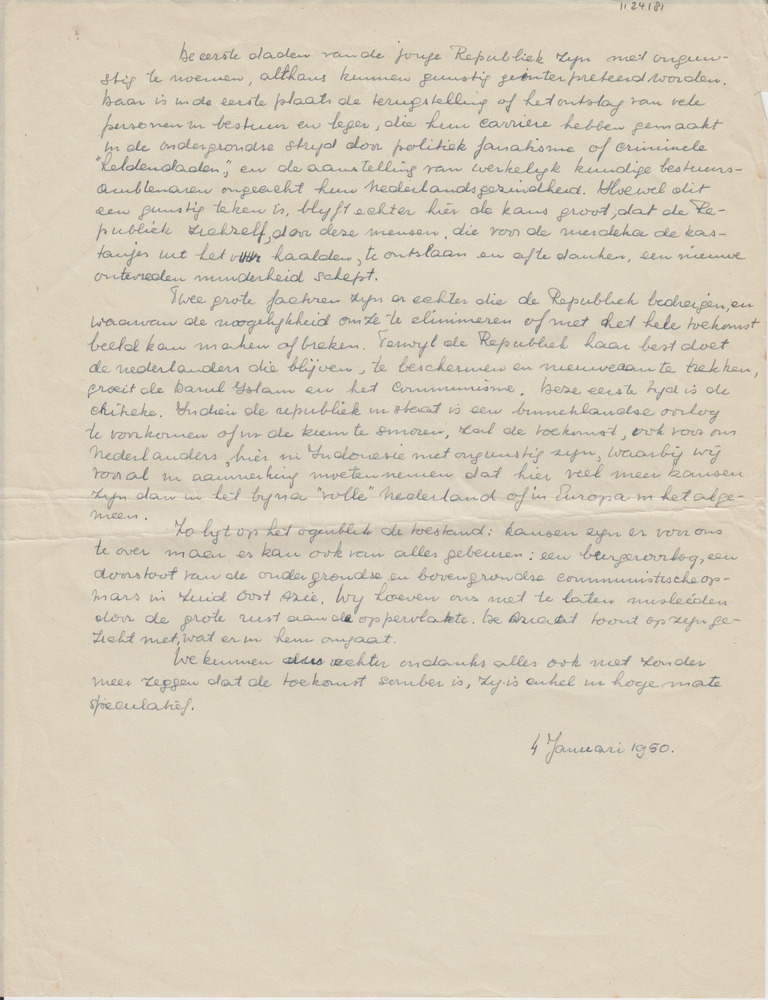 11.24181
De eerste daden van de jonge Republiek zyn niet ongun-
stig te noemen, althans kunnen gunstig geinterpreteerd worden.
Daar is in de eerste plaats de terugstelling of het ontslag van vele
personen in bestuur en leger, die hun carrière hebben gemaakt
in de ondergrondse stryd door politiek fanatisme of criminele
"heldendaden", en de aanstelling van werkelyk kundige bestuurs-
ambtenaren ongeacht hun Nederlandsgezindheid. Hoewel dit
een gunstig teken is, blyft echter hier de kans groot, dat de Re-
publiek zichzelf, door deze mensen, die voor de merdeka de kas-
tanjes uit het vuur haalden, te ontslaan en af te danken, een nieuwe
ontevreden minderheid schept.
Twee grote factoren zyn er echter die de Republiek bedreigen, en
waarvan de mogelykheid om ze te elimineren of niet het hele toekomst
beeld kan maken of breken. Terwyl de Republiek haar best doet
de nederlanders die blijven, te beschermen en nieuwe aan te trekken,
groeit de Darul Yslam en het Communisme. Deze eerste tyd is de
critieke. Indien de republiek in staat is een binnenlandse oorlog
te voorkomen of in de kiem te smoren, zal de toekomst, ook voor ons
Nederlanders, hier in Indonesie niet ongunstig zyn, waarbij wij
vooral in aanmerking moeten nemen dat hier veel meer kansen
zyn dan in het byna "volle" Nederland of in Europa in het alge-
meen.
Zo ligt op het ogenblik de toestand: kansen zyn er voor ons
te over maar er kan ook van alles gebeuren: een burgeroorlog, een
doorstoot van de ondergrondse en bovengrondse communistische op-
mars in Zuid Oost Azie. Wy hoeven ons niet te laten misleiden
door de grote rust aan de oppervlakte. De Aziaat toont op zyn ge-
zicht niet, wat er in hem omgaat.
We kunnen dus echter ondanks alles ook niet zonder
meer zeggen dat de toekomst somber is, zy is enkel in hoge mate
speculatief.
4 Januari 1950.